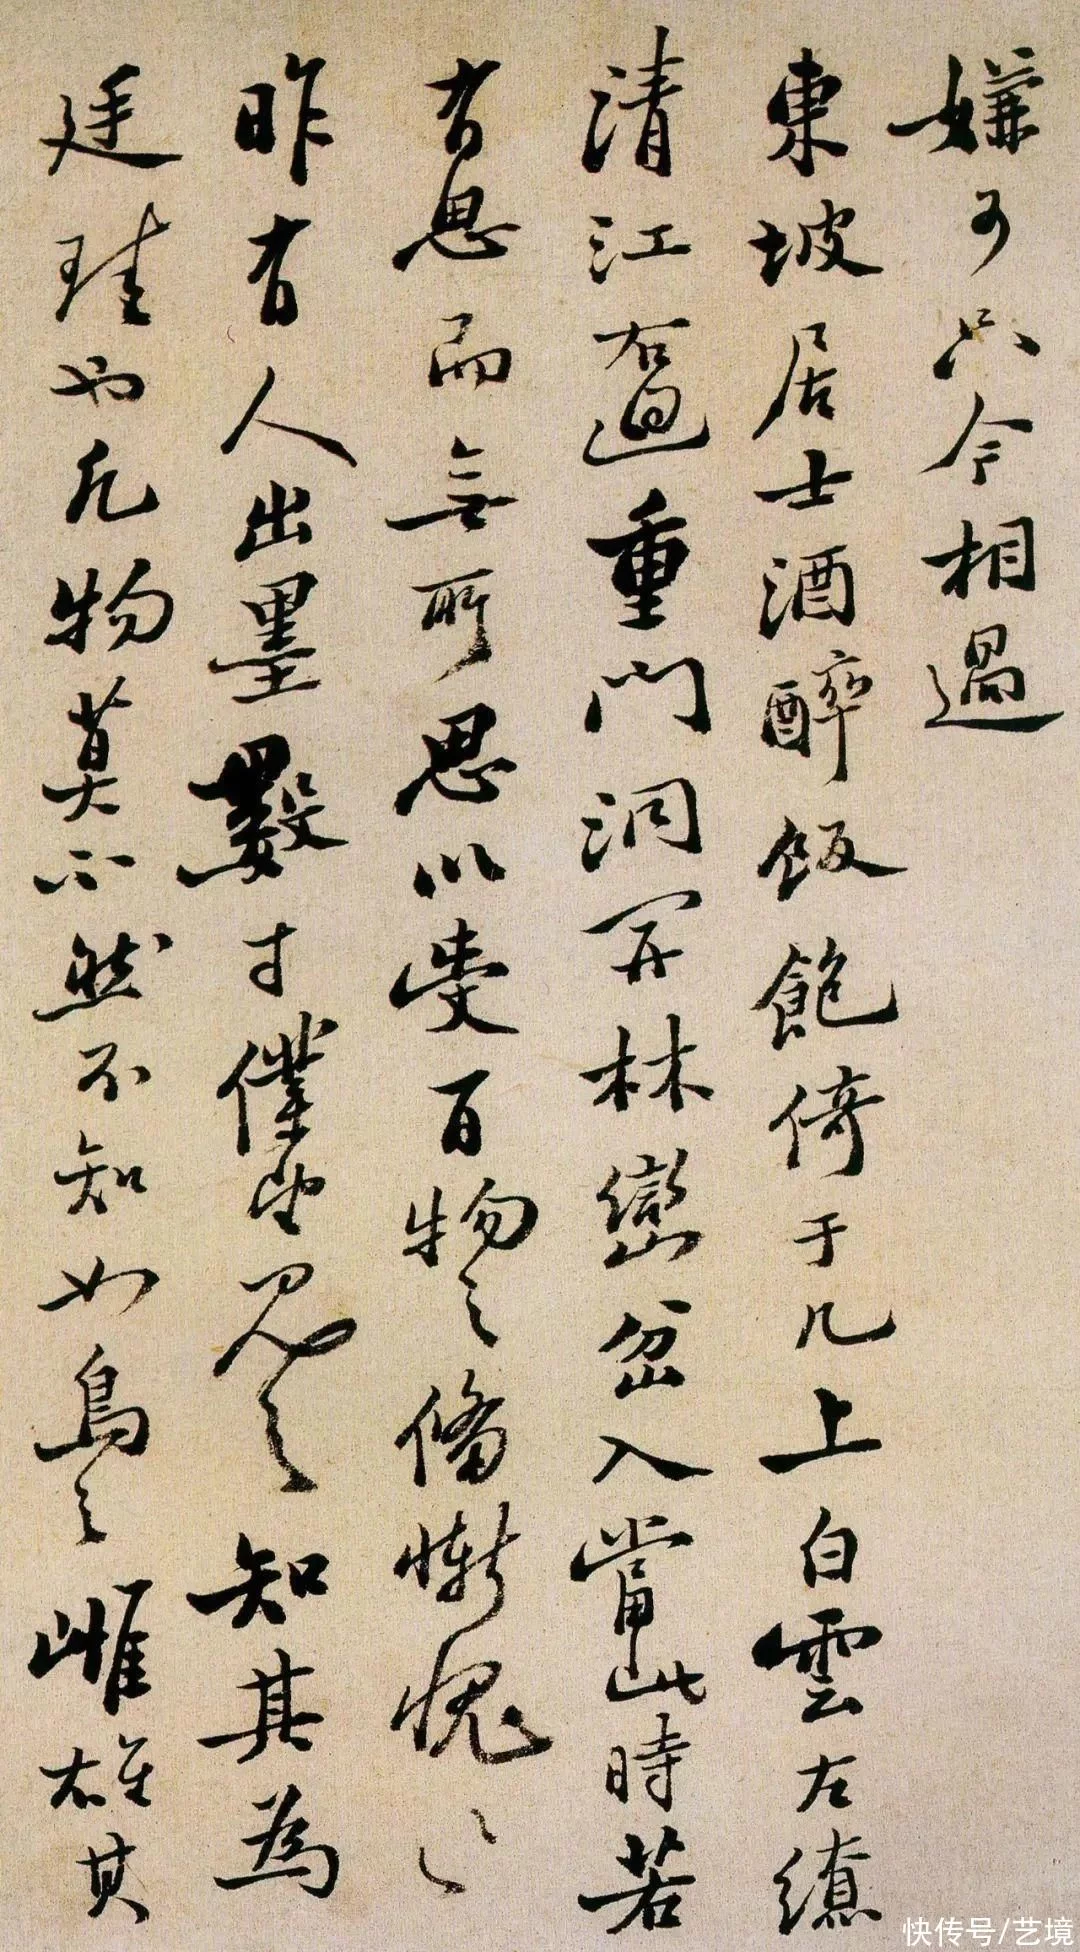 嫌可只今相過
東坡居士酒醉飯飽倚于几上白雲左繚
清江右迴重門洞開林巒岔入當此時若
有思而無所思以受百物之備慚愧々
昨有人出墨數寸僕望見之知其為
廷珪也凡物莫不然不知如鳥之雌雄其
快传号/艺境